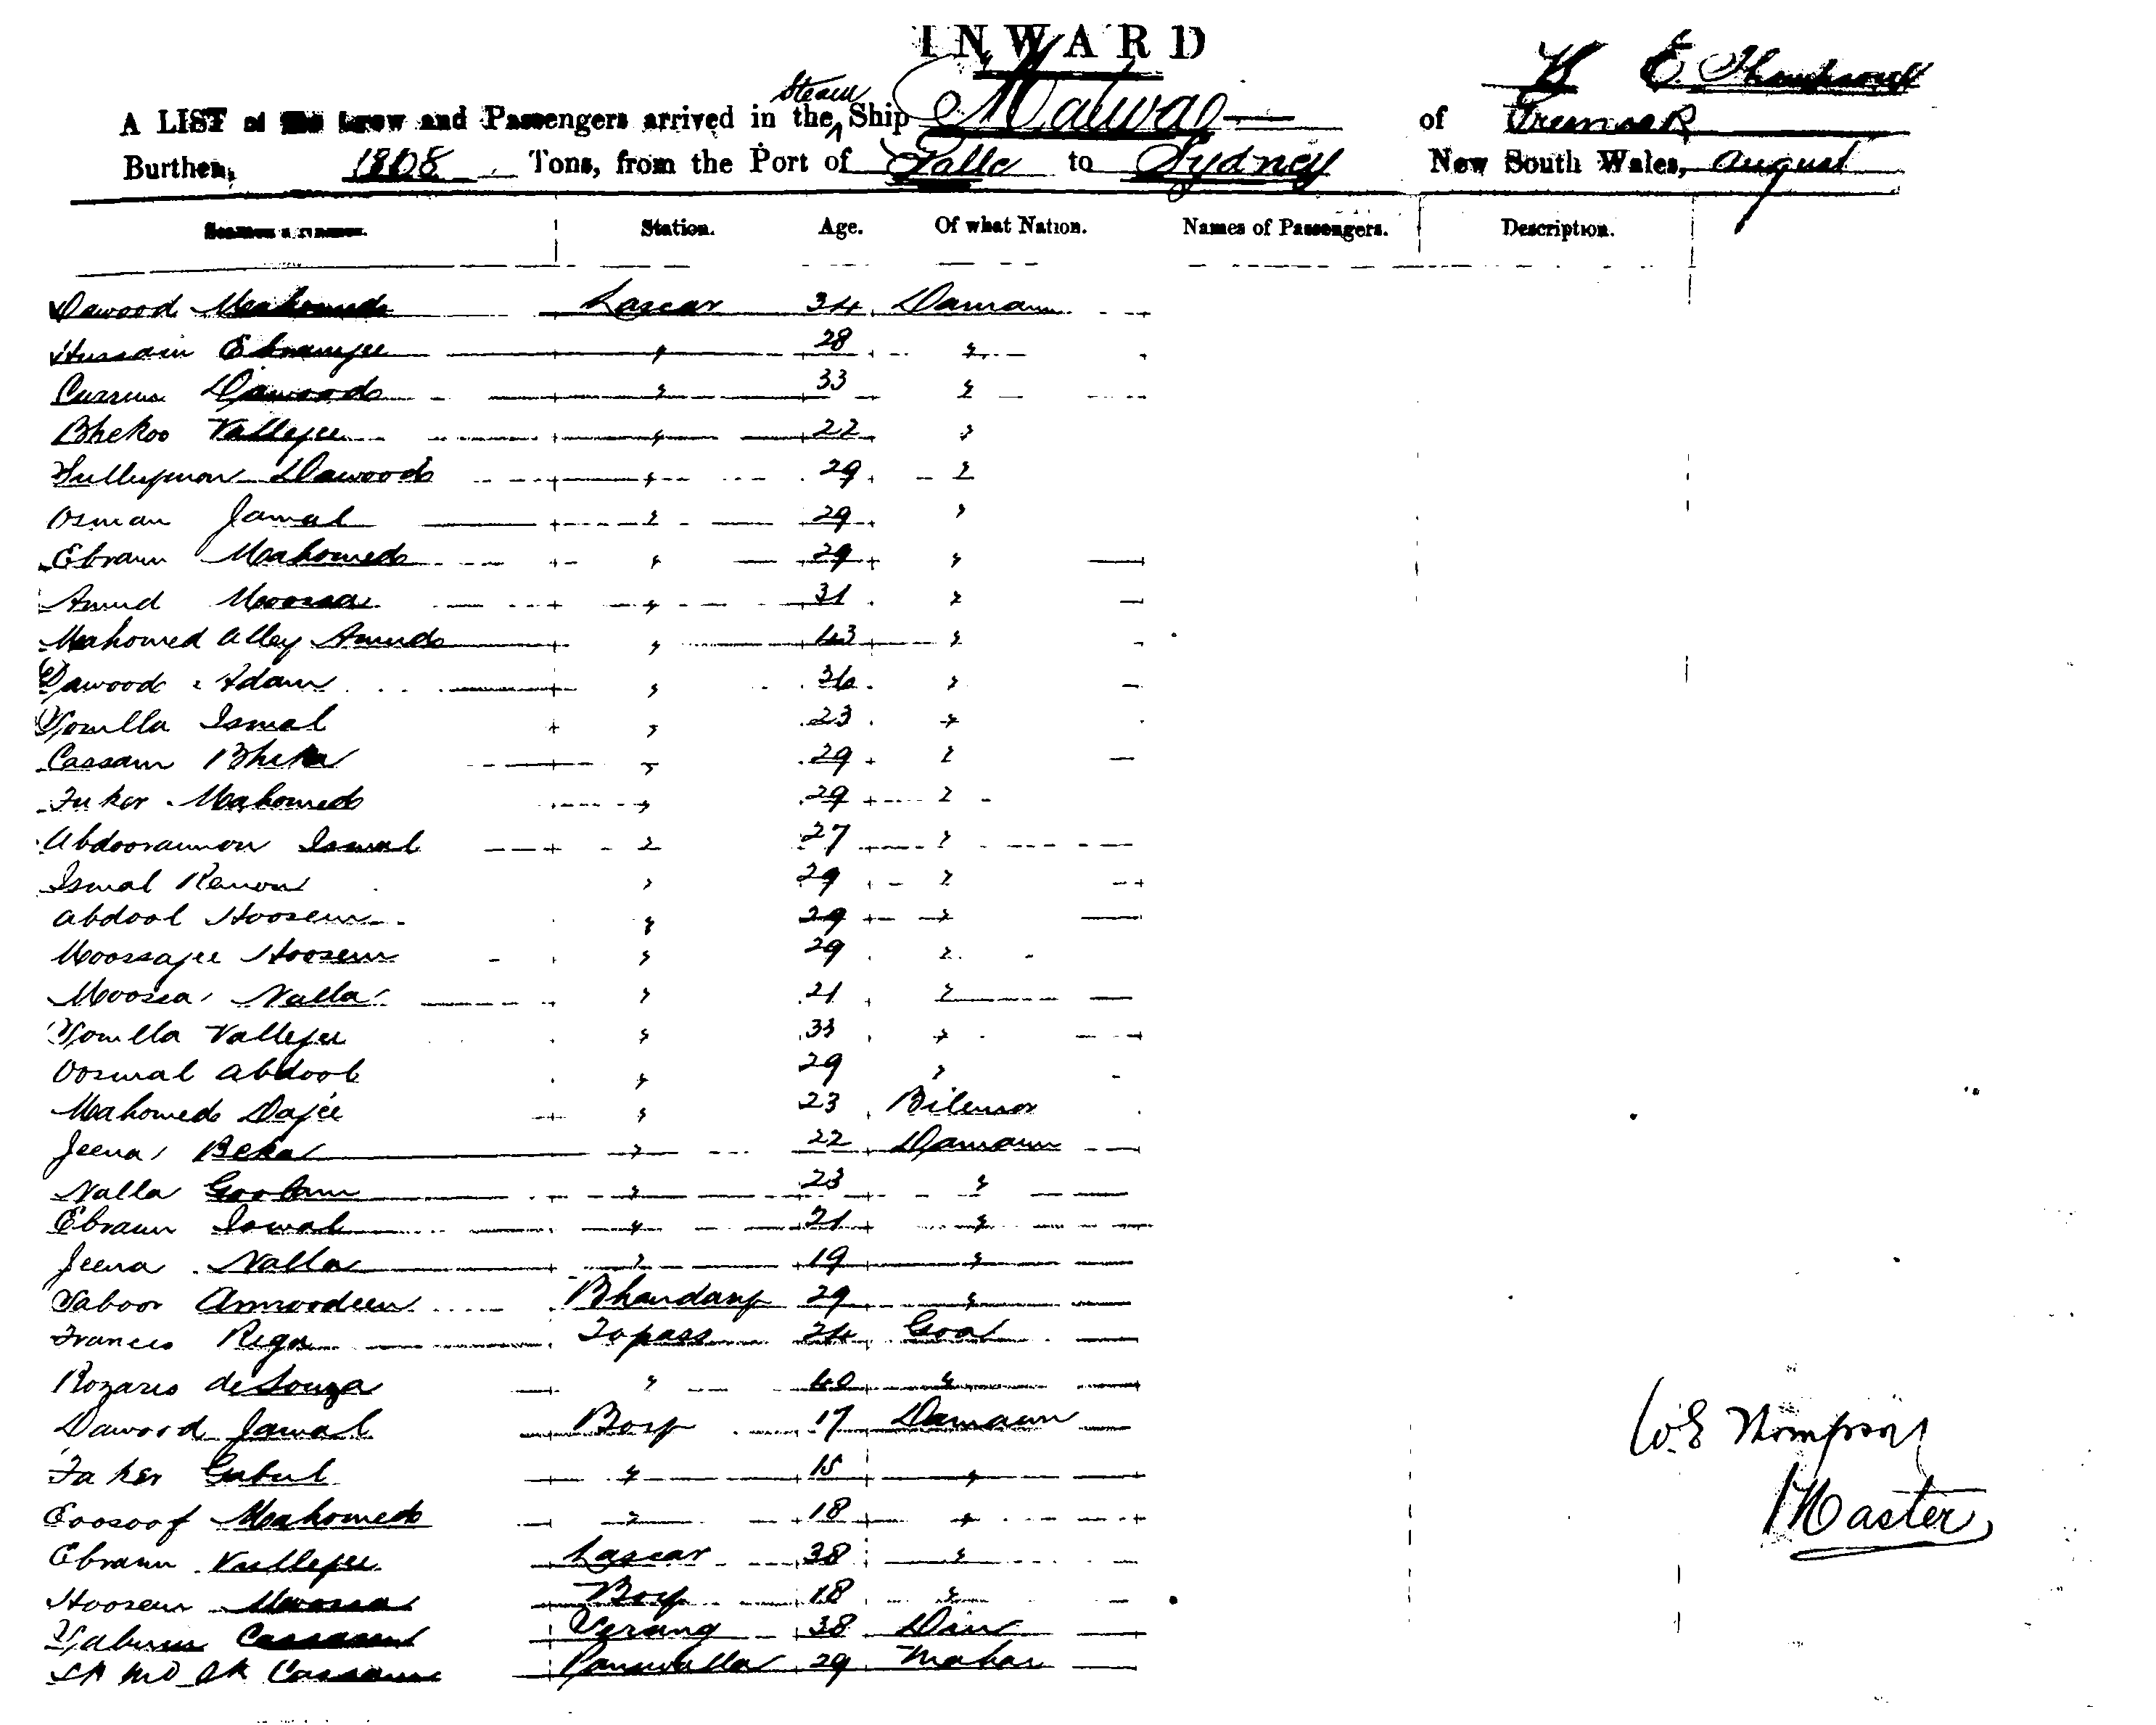 INWARD
A LIST of the Crew and Passengers arrived in the Steam Ship Malwa of Greenock W E Thompson
Burthen, 1808 Tons, from the Port of Galle to Sydney New South Wales, August
Station. Age. Of what Nation. Names of Passengers. Description.
Dawood Mahomed Lascar 34 Damaun
Hussain Ebramjee " 28 "
Cussum Dawood " 33 "
Bhekoo Vallejee " 22 "
Sulleymon Dawood " 29 "
Osman Jamal " 29 "
Ebram Mahomed " 29 "
Amud Moossa " 31 "
Mahomed Alley Amud " 43 "
Dawood Adam " 36 "
Ismal " 23 "
Cassam Bheka " 29 "
Fuker Mahomed " 29 "
Abdooramon Ismal " 27 "
Ismal Ramon " 29 "
Abdool Hoosem " 29 "
Moossajee Hoosem " 29 "
Moosa Nalla " 21 "
Vallejee " 33 "
Oosmal Abdool " 29 "
Mahomed Dajee " 23 Bilemor
Jeena Beka " 22 Damaun
Nalla Goolam " 23 "
Ebram Ismal " 21 "
Jeena Nalla " 19 "
Saboor Amoodeen Bhandary 29 "
Francis Rega Topass 24 Goa
Rozario de Souza " 40 "
Dawood Jamal Boy 17 Damaun
Faker Gubul " 15 "
Eoosoof Mahomed " 18 "
Ebram Vullejee Lascar 38 "
Hoosem Moossa Boy 18 "
Cassam Serang 38 Diu
Sk Md Sk Cassam Paniwalla 29 Mahar
W E Thompson
Master